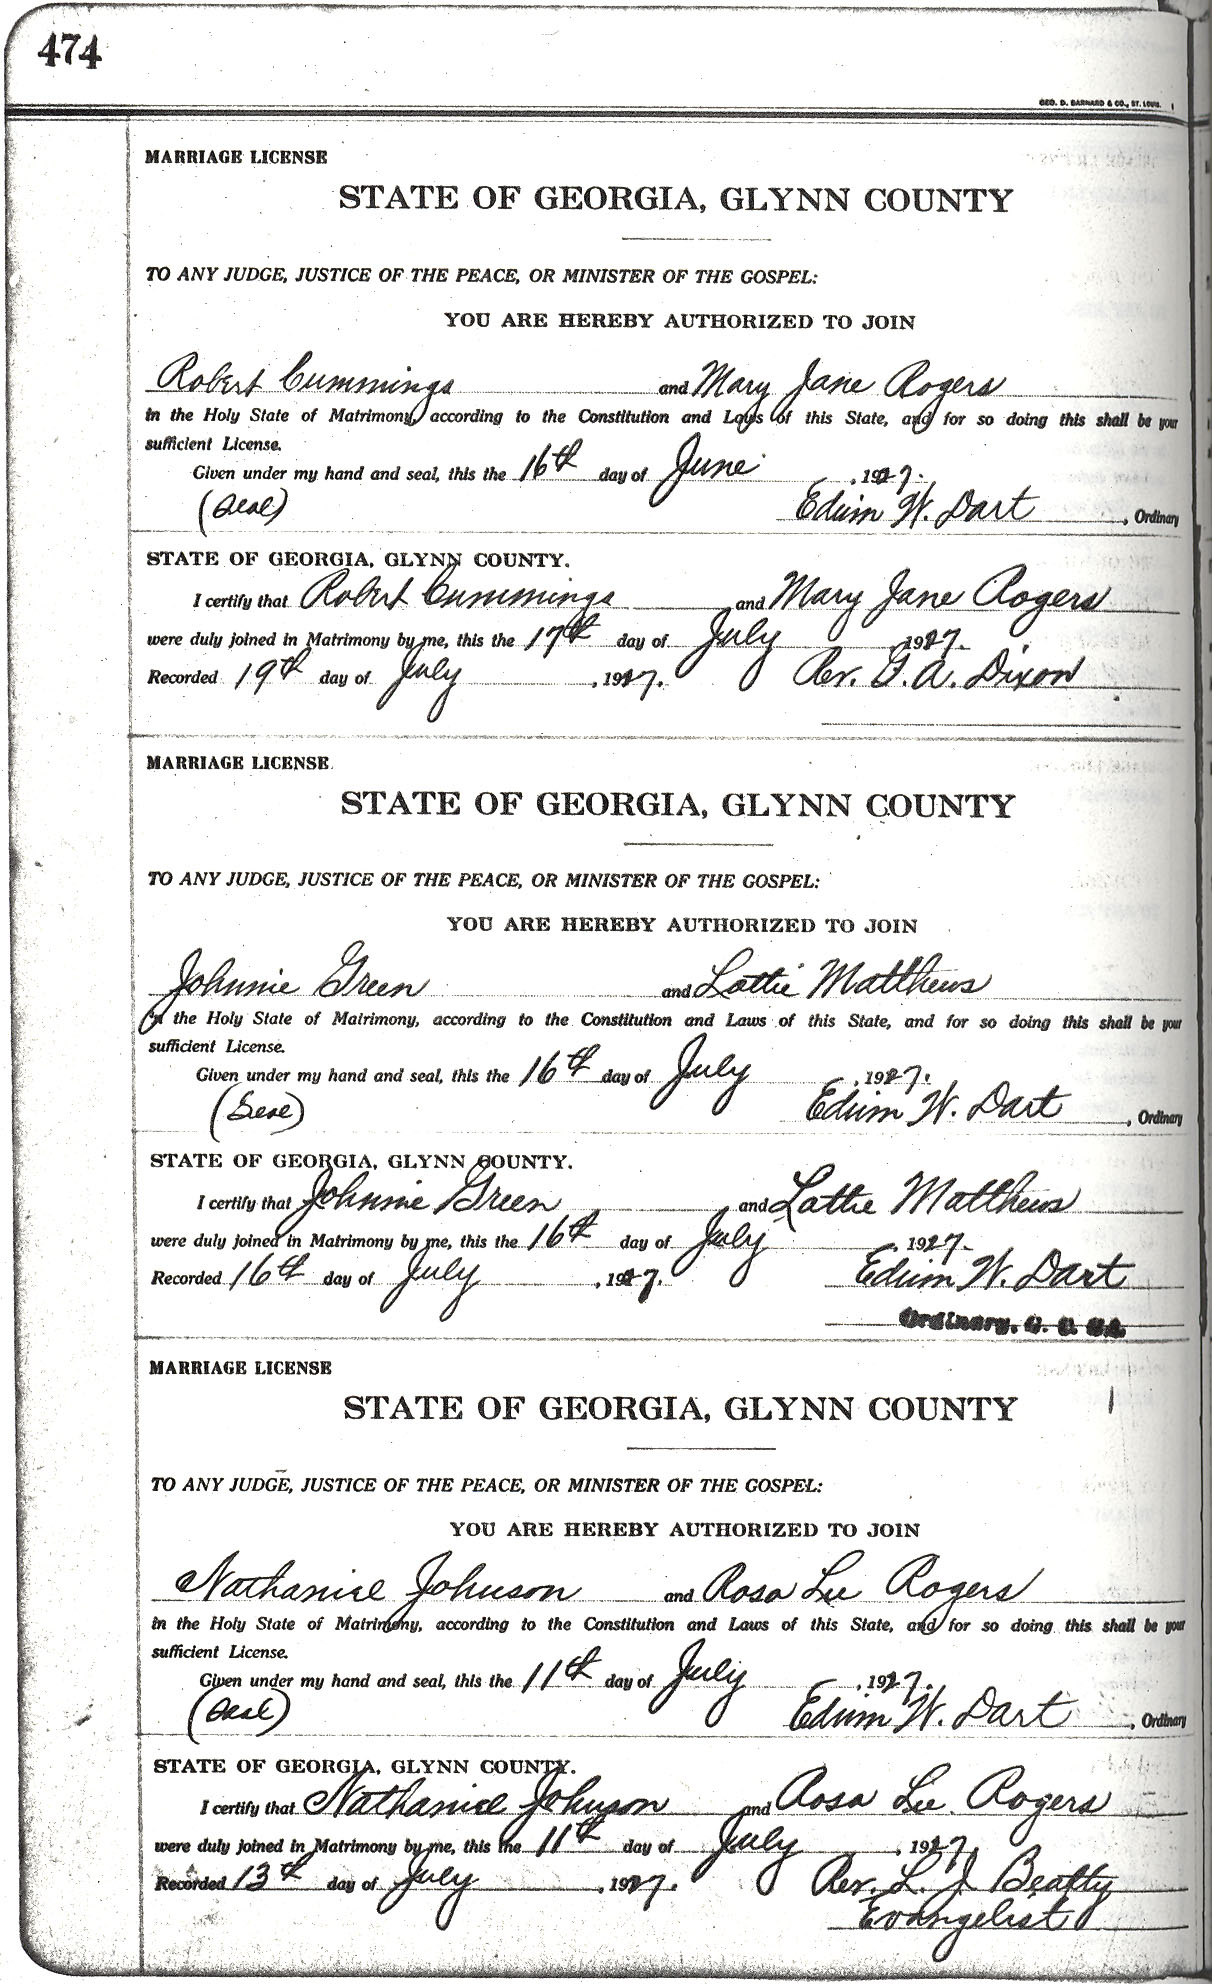 474
GEO. D. BARNARD & CO., ST. LOUIS.
MARRIAGE LICENSE
STATE OF GEORGIA, GLYNN COUNTY
TO ANY JUDGE, JUSTICE OF THE PEACE, OR MINISTER OF THE GOSPEL:
YOU ARE HEREBY AUTHORIZED TO JOIN
Robert Cummings and Mary Jane Rogers
in the Holy State of Matrimony, according to the Constitution and Laws of this State, and for so doing this shall be your
sufficient License.
Given under my hand and seal, this the 16th day of June , 1927.
(Seal) Edwin W. Dart , Ordinary
STATE OF GEORGIA, GLYNN COUNTY.
I certify that Robert Cummings and Mary Jane Rogers
were duly joined in Matrimony by me, this the 17th day of July 1927.
Recorded 19th day of July , 1927. Rev. G. A. Dixon
MARRIAGE LICENSE
STATE OF GEORGIA, GLYNN COUNTY
TO ANY JUDGE, JUSTICE OF THE PEACE, OR MINISTER OF THE GOSPEL:
YOU ARE HEREBY AUTHORIZED TO JOIN
Johnnie Green and Lottie Matthews
in the Holy State of Matrimony, according to the Constitution and Laws of this State, and for so doing this shall be your
sufficient License.
Given under my hand and seal, this the 16th day of July , 1927.
(Seal) Edwin W. Dart , Ordinary
STATE OF GEORGIA, GLYNN COUNTY.
I certify that Johnnie Green and Lottie Matthews
were duly joined in Matrimony by me, this the 16th day of July , 1927.
Recorded 16th day of July , 1927. Edwin W. Dart
Ordinary, G. C. GA.
MARRIAGE LICENSE
STATE OF GEORGIA, GLYNN COUNTY
TO ANY JUDGE, JUSTICE OF THE PEACE, OR MINISTER OF THE GOSPEL:
YOU ARE HEREBY AUTHORIZED TO JOIN
Nathaniel Johnson and Rosa Lee Rogers
in the Holy State of Matrimony, according to the Constitution and Laws of this State, and for so doing this shall be your
sufficient License.
Given under my hand and seal, this the 11th day of July , 1927.
(Seal) Edwin W. Dart , Ordinary
STATE OF GEORGIA, GLYNN COUNTY.
I certify that Nathaniel Johnson and Rosa Lee Rogers
were duly joined in Matrimony by me, this the 11th day of July , 1927.
Recorded 13th day of July , 1927. Rev. L. J. Beatty
Evangelist